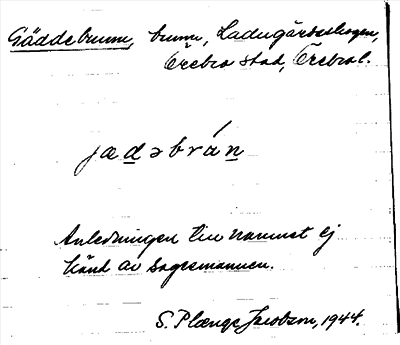 Gäddebrunn, brunn, Ladugårdsskogen,
Örebro stad, Örebro l.
jædəbrún
Anledningen till namnet ej
känd av sagesmannen.
S. Plænge Jacobson, 1944.